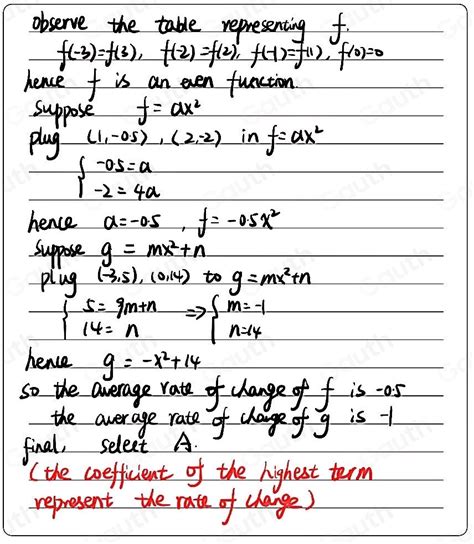 observe the table representing f.
f(-3)=f(3), f(-2)=f(2), f(-1)=f(1), f(0)=0
hence f is an even function.
Suppose f=ax²
plug (1,-0.5), (2,-2) in f=ax²
{ -0.5=a
-2=4a
hence a=-0.5, f=-0.5x²
Suppose g = mx²+n
plug (-3,5), (0,14) to g=mx²+n
{ 5=9m+n => { m=-1
14=n n=14
hence g=-x²+14
so the average rate of change of f is -0.5
the average rate of change of g is -1
final, select A.
(the coefficient of the highest term
represent the rate of change)